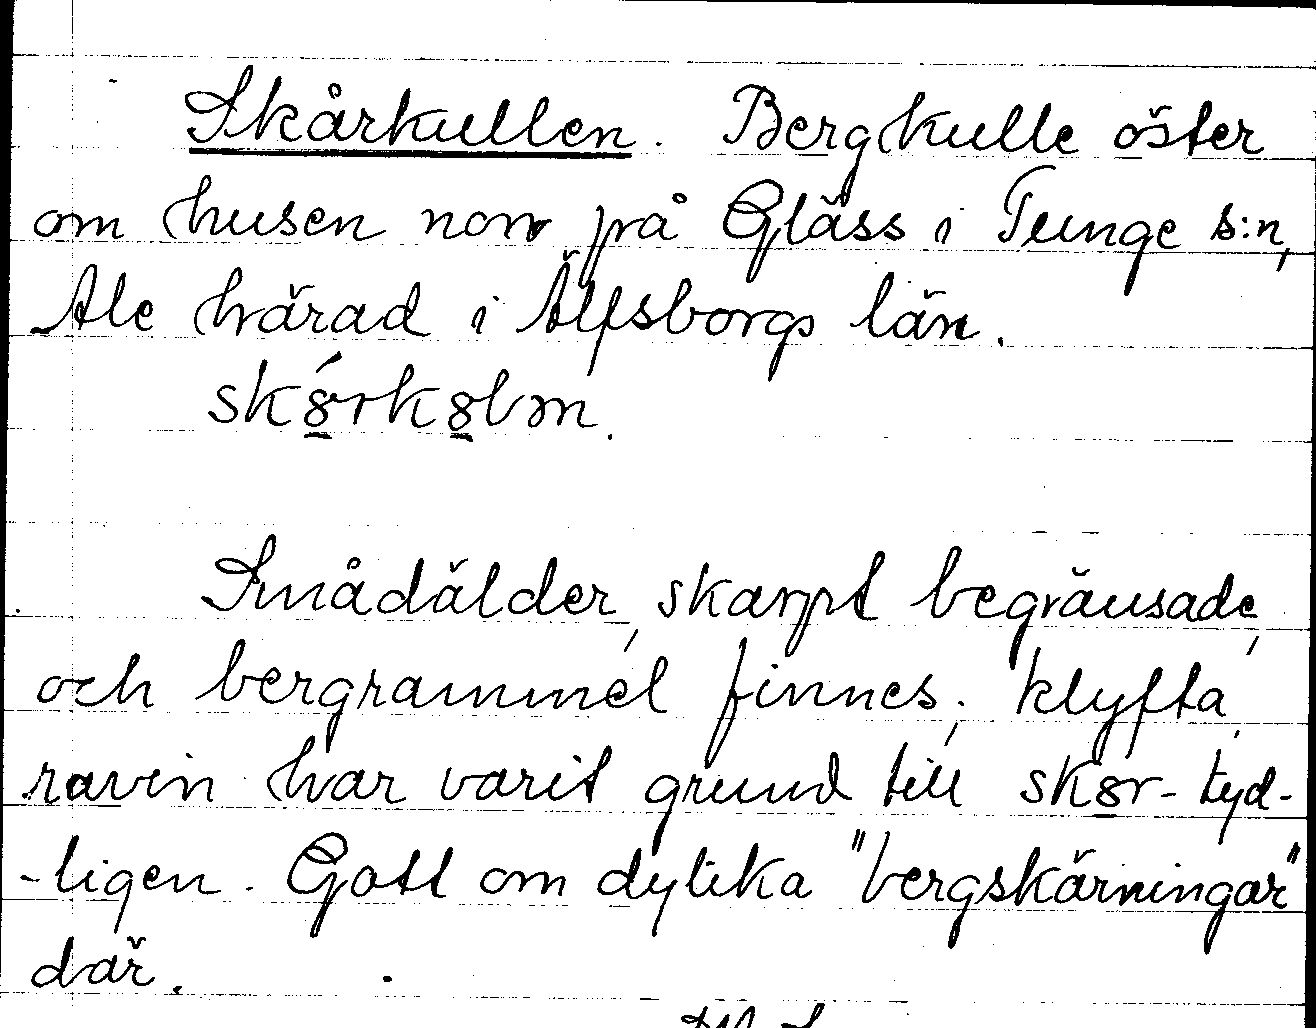 Skårkullen. Bergkulle öster
om husen norr på Gläss i Tunge s:n,
Ale härad i Älfsborgs län.
Smådälder, skarpt begränsade,
och bergrammel finnes; klyfta,
ravin har varit grund till skȣr- tyd-
-ligen. Gott om dylika "bergskärningar"
där.